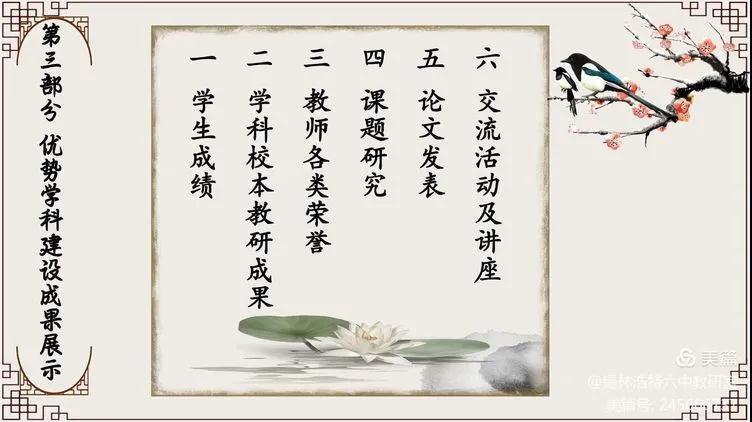 第三部分 优势学科建设成果展示
一 学生成绩
二 学科校本教研成果
三 教师各类荣誉
四 课题研究
五 论文发表
六 交流活动及讲座
美篇
@锡林浩特六中教研室
美篇号: